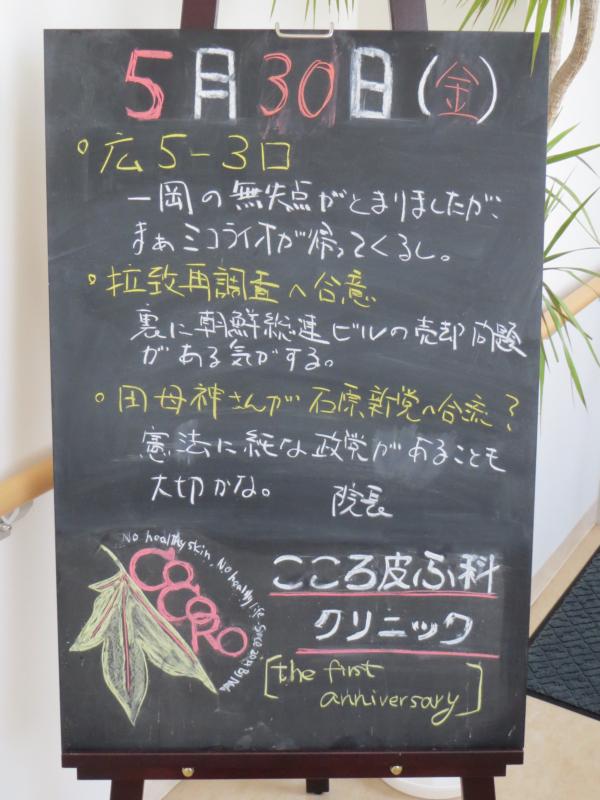 5月30日(金)
広5-3ロ
一岡の無失点がとまりましたが、
まぁミコライオが帰ってくるし。
拉致再調査へ合意
裏に朝鮮総連ビルの売却問題
がある気がする。
田母神さんが石原新党へ合流?
憲法に純な政党があることも
大切かな。 院長
No healthy skin. No healthy life. Since 2013
COCORO
こころ皮ふ科
クリニック
[the first
anniversary]